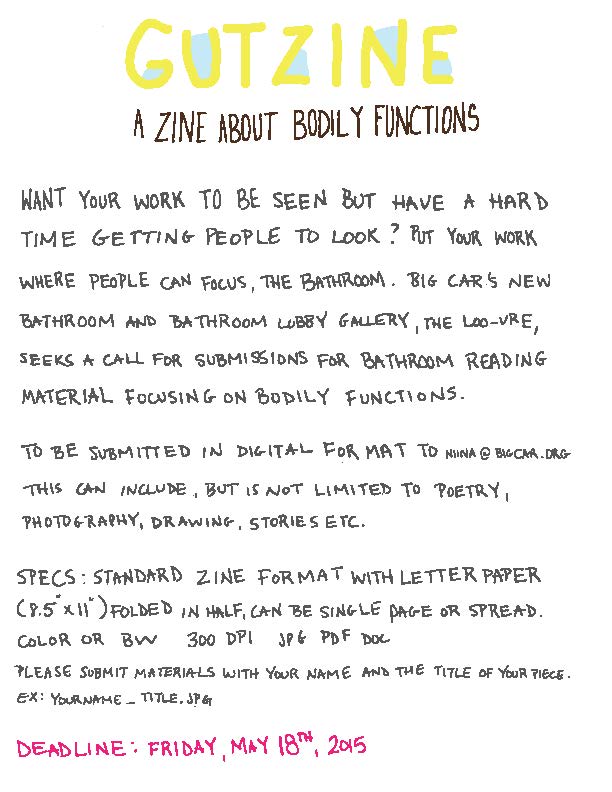 GUTZINE
A ZINE ABOUT BODILY FUNCTIONS
WANT YOUR WORK TO BE SEEN BUT HAVE A HARD
TIME GETTING PEOPLE TO LOOK? PUT YOUR WORK
WHERE PEOPLE CAN FOCUS, THE BATHROOM. BIG CAR'S NEW
BATHROOM AND BATHROOM LOBBY GALLERY, THE LOO-VRE,
SEEKS A CALL FOR SUBMISSIONS FOR BATHROOM READING
MATERIAL FOCUSING ON BODILY FUNCTIONS.
TO BE SUBMITTED IN DIGITAL FORMAT TO NIINA@BIGCAR.ORG
THIS CAN INCLUDE, BUT IS NOT LIMITED TO POETRY,
PHOTOGRAPHY, DRAWING, STORIES ETC.
SPECS: STANDARD ZINE FORMAT WITH LETTER PAPER
(8.5" X 11") FOLDED IN HALF, CAN BE SINGLE PAGE OR SPREAD.
COLOR OR BW 300 DPI JPG PDF DOC
PLEASE SUBMIT MATERIALS WITH YOUR NAME AND THE TITLE OF YOUR PIECE.
EX: YOURNAME_TITLE.JPG
DEADLINE: FRIDAY, MAY 18TH, 2015